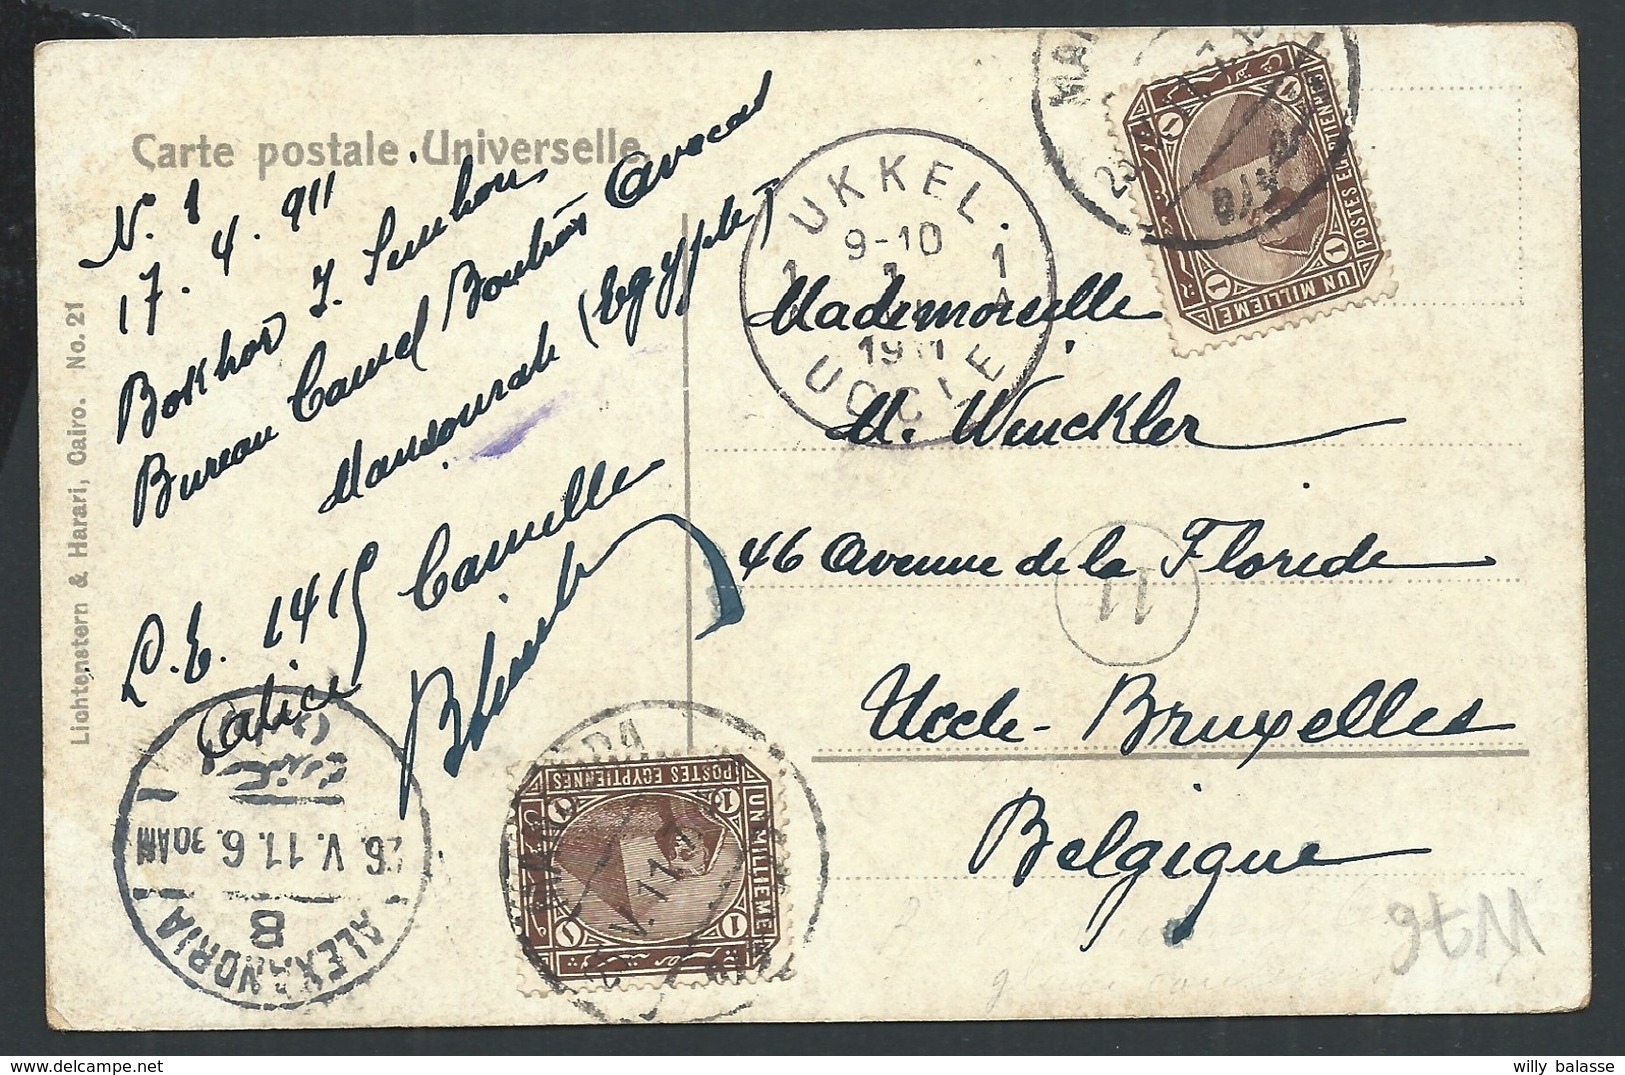 Carte postale Universelle.
No. 1
17. 4. 911
Bokhor J.
Bureau Camel Boutros Avocat
Mansourah (Egypte)
L.E. 1415 Camille
Lichtenstern & Harari, Cairo. No. 21
UKKEL
9-10
1
1911
UCCLE
1 1
A
POSTES EGYPTIENNES
UN MILLIEME
1 1
Mademoiselle
M. Winckler
46 Avenue de la Floride
11
Uccle-Bruxelles
Belgique
POSTES EGYPTIENNES
UN MILLIEME
1 1
26. V. 11. 6 30AM
ALEXANDRIA
B
willy balasse